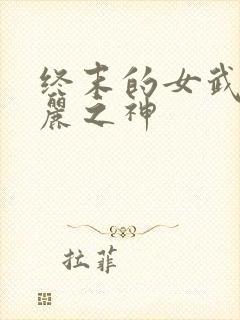 终末的女武
麗之神
拉菲